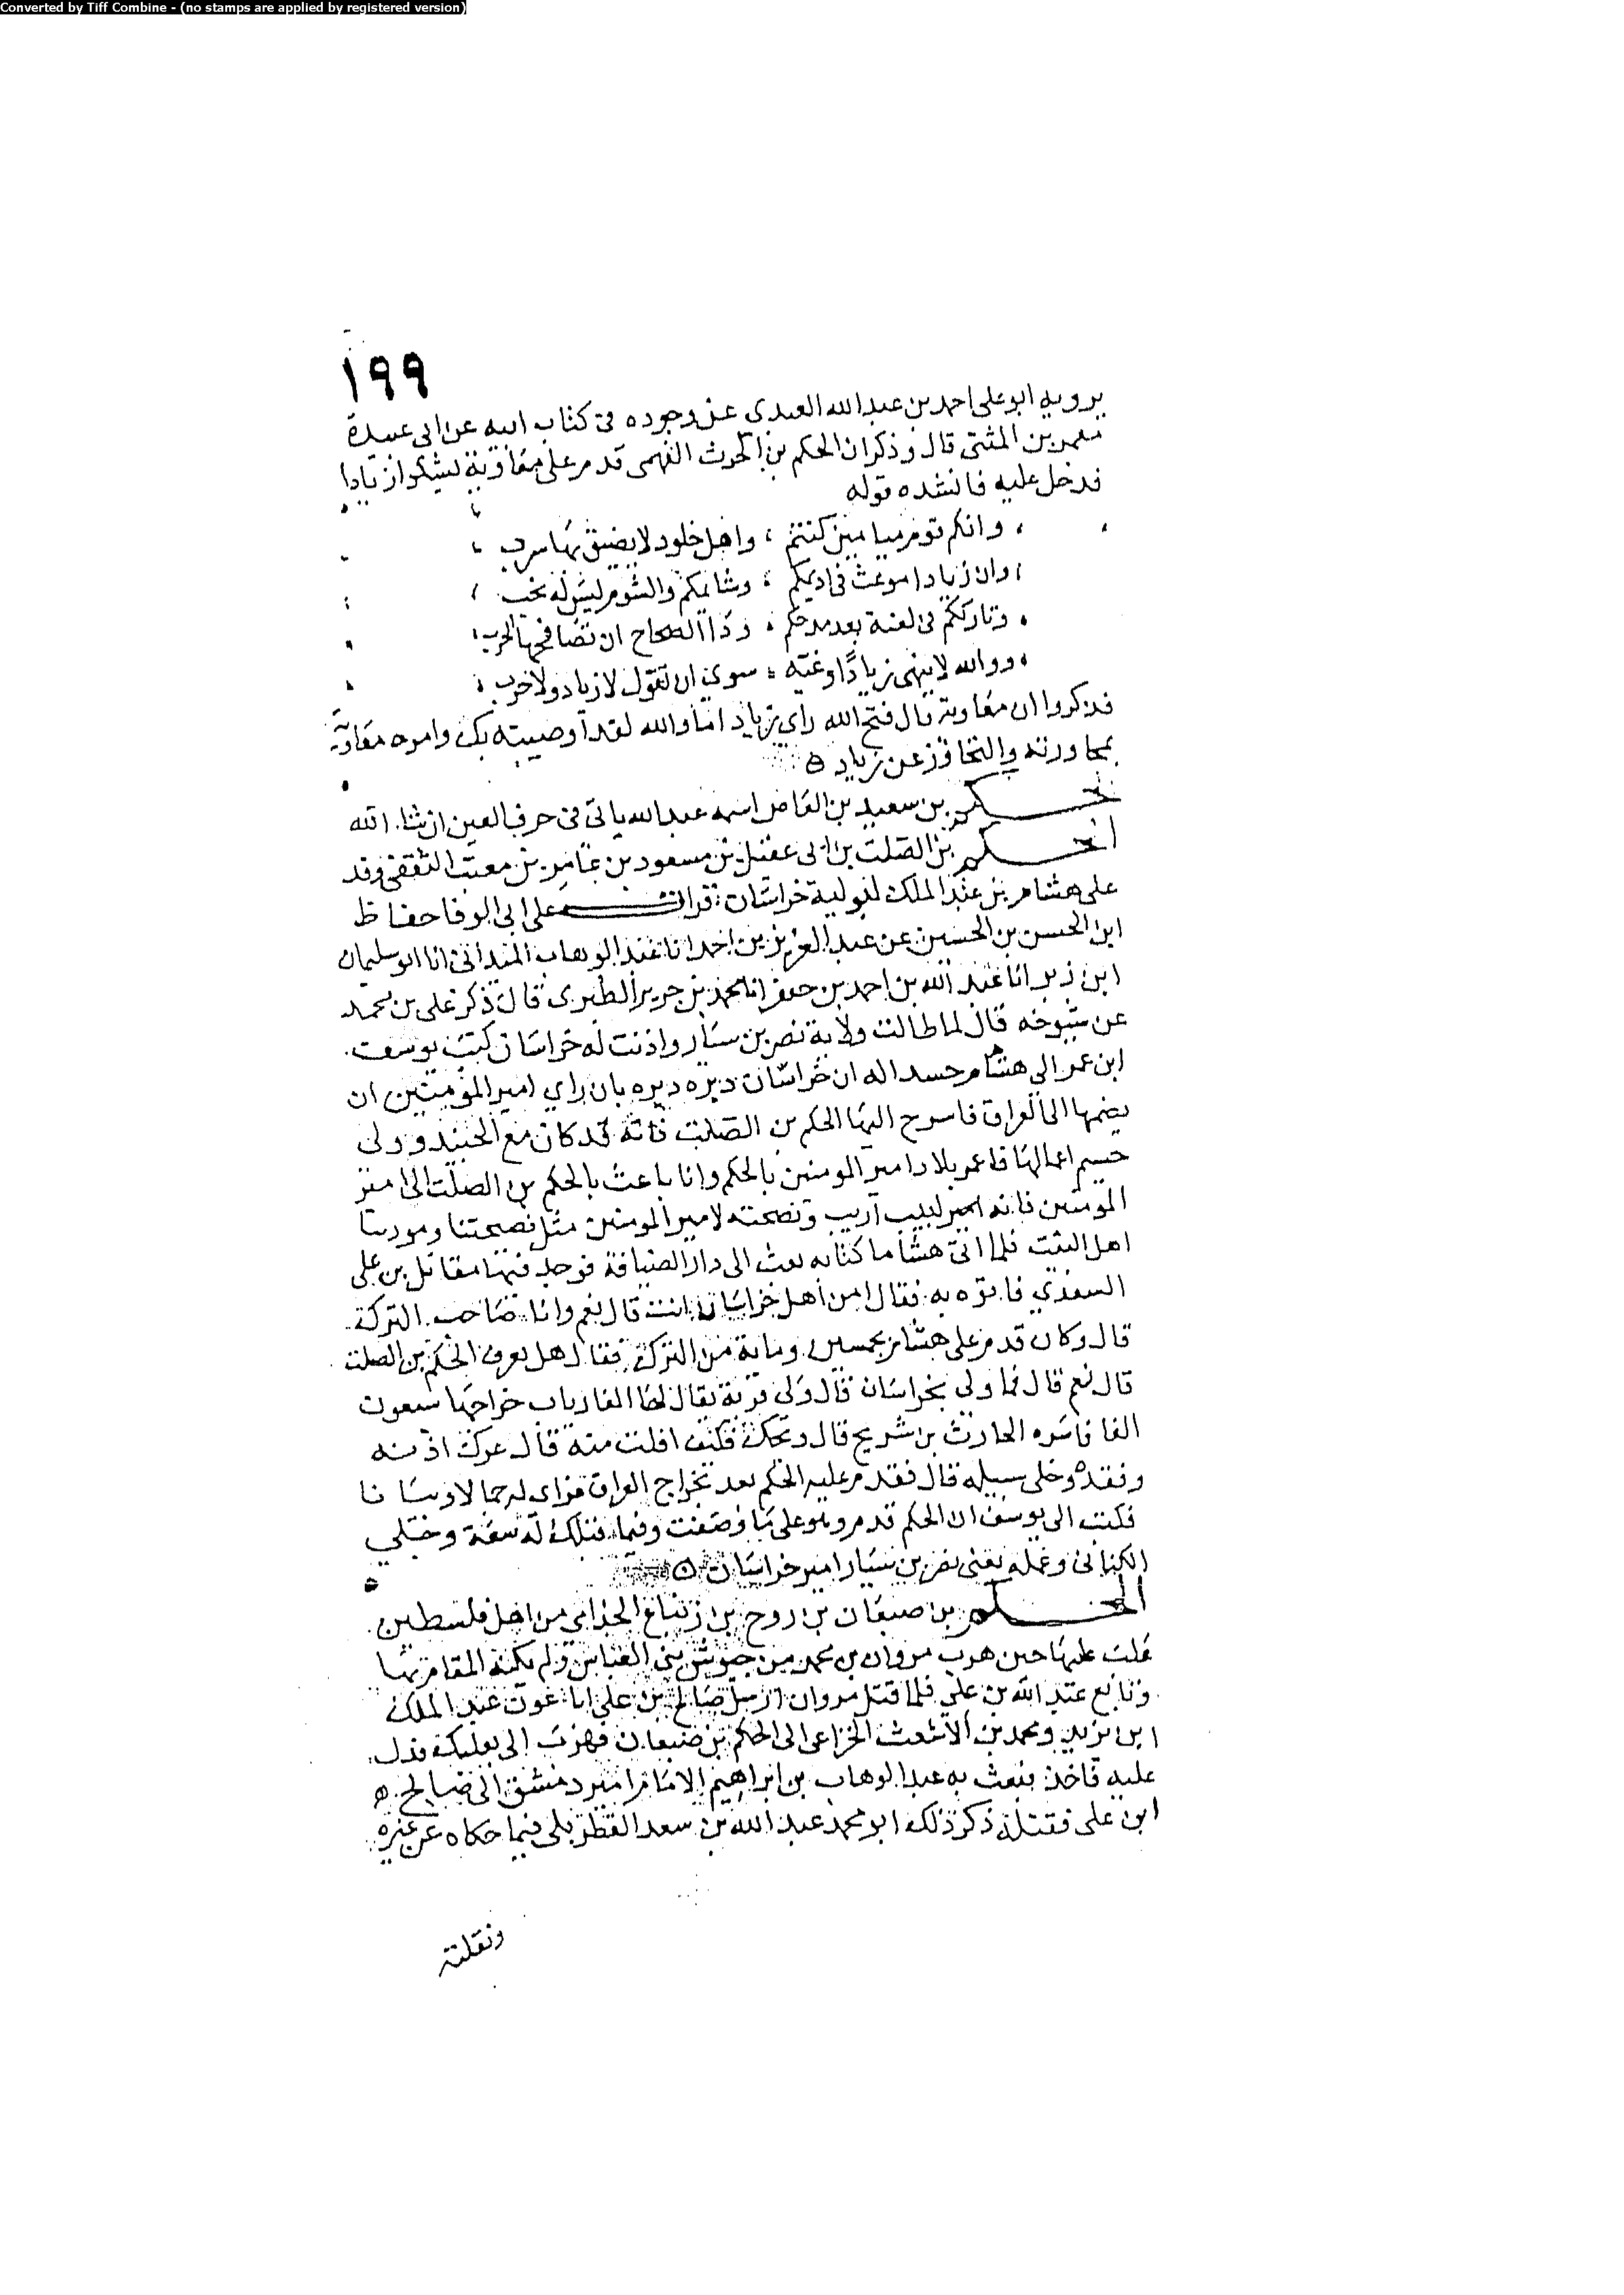 Converted by Tiff Combine - (no stamps are applied by registered version)
١٩٩
يرويه ابو على احمد بن عبد الله العبدى عن وجوده فى كتاب ابيه عن ابى عبيدة
معمر بن المثنى قال وذكر ان الحكم بن الحرث الفهمى قدم على معاوية ليشكو زيادا
فدخل عليه فانشده قوله
وانكم قوم ميامين كنتم واهل خلود لا يضيق بها سرب
وان زيادا موعث فى اديمكم وشانمكم والشوم ليس له نحب
وتارككم فى لعنة بعد مدحكم الصحاح ان تصافحها الجرب
ووالله لا ينهى زيادًا وغيه سوى ان تقول لا زياد ولا حرب
فذكروا ان معاوية قال فتح الله راى زياد اما والله لقد اوصيته بك وامره معاوية
والتجاوز عن زياد
الحكم بن سعيد بن العاص اسمه عبد الله ياتى فى حرف العين ان شاء الله
الحكم بن الصلت بن ابى عقيل بن مسعود بن عامر بن معتب الثقفى وفد
على هشام بن عبد الملك لتوليه خراسان قرات على ابى الوفا حفاظ
ابن الحسن بن الحسين عن عبد العزيز بن احمد انا عبد الوهاب الميدانى انا ابو سليمان
ابن زبر انا عبد الله بن احمد بن جعفر انا محمد بن جرير الطبرى قال ذكر على بن محمد
عن شيوخه قال لما طالت ولاية نصر بن سيار واذنت له خراسان كتب يوسف
ابن عمر الى هشام حسدا له ان خراسان دبره دبره فان راي امير المؤمنين ان
يضمها الى العراق فاسرح اليها الحكم بن الصلت فانه قد كان مع الجنيد وولى
جسيم اعمالها فاعمر بلاد امير المومنين بالحكم وانا باعث بالحكم بن الصلت الى امير
المومنين فانه لبيب اريب ونصحته لامير المومنين مثل نصيحتنا ومودتنا
اهل البيت فلما اتى هشاما كتابه بعث الى دار الضيافة فوجد فيها مقاتل بن على
السعدي فاتوه به فقال امن اهل خراسان انت قال نعم وانا صاحب التركة
قال وكان قدم على هشام بخمسين وماية من التركة فقال هل تعرف الحكم بن الصلت
قال نعم قال فما ولى بخراسان قال ولى قرية يقال لها الفارياب خراجها سبعون
الفا فاسره الحارث بن شريح قال ويحك فكيف افلت منه قال عرك اذنه
وفقده وخلى سبيله قال فقدم عليه الحكم بعد بخراج العراق فراى له جمالا وبيانا
فكتب الى يوسف ان الحكم قدم وهو على ما وصفت وفيما قبلك له سعة وخلى
الكنانى وعمله يعنى نصر بن سيار امير خراسان
الحكم بن ضبعان بن روح بن زنباع الجذامى من اهل فلسطين
غلب عليها حين هرب مروان بن محمد من جيوش بنى العباس ولم يمكنه المقام بها
وتابع عبد الله بن علي فلما قتل مروان ارسل صالح بن على ابا عون عبد الملك
ابن يزيد ومحمد بن الاشعث الخزاعى الى الحكم بن ضبعان فهرب الى بعلبك فدل
عليه فاخذ فبعث به عبد الوهاب بن ابراهيم الامام امير دمشق الى صالح
ابن على فقتله ذكر ذلك ابو محمد عبد الله بن سعد القطربلى فيما حكاه عن غيره
ونقلته